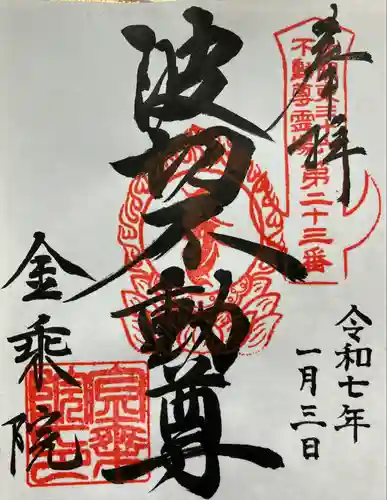 奉拝
不動尊霊場第二十三番
波切不動尊
令和七年
一月三日
金乘院